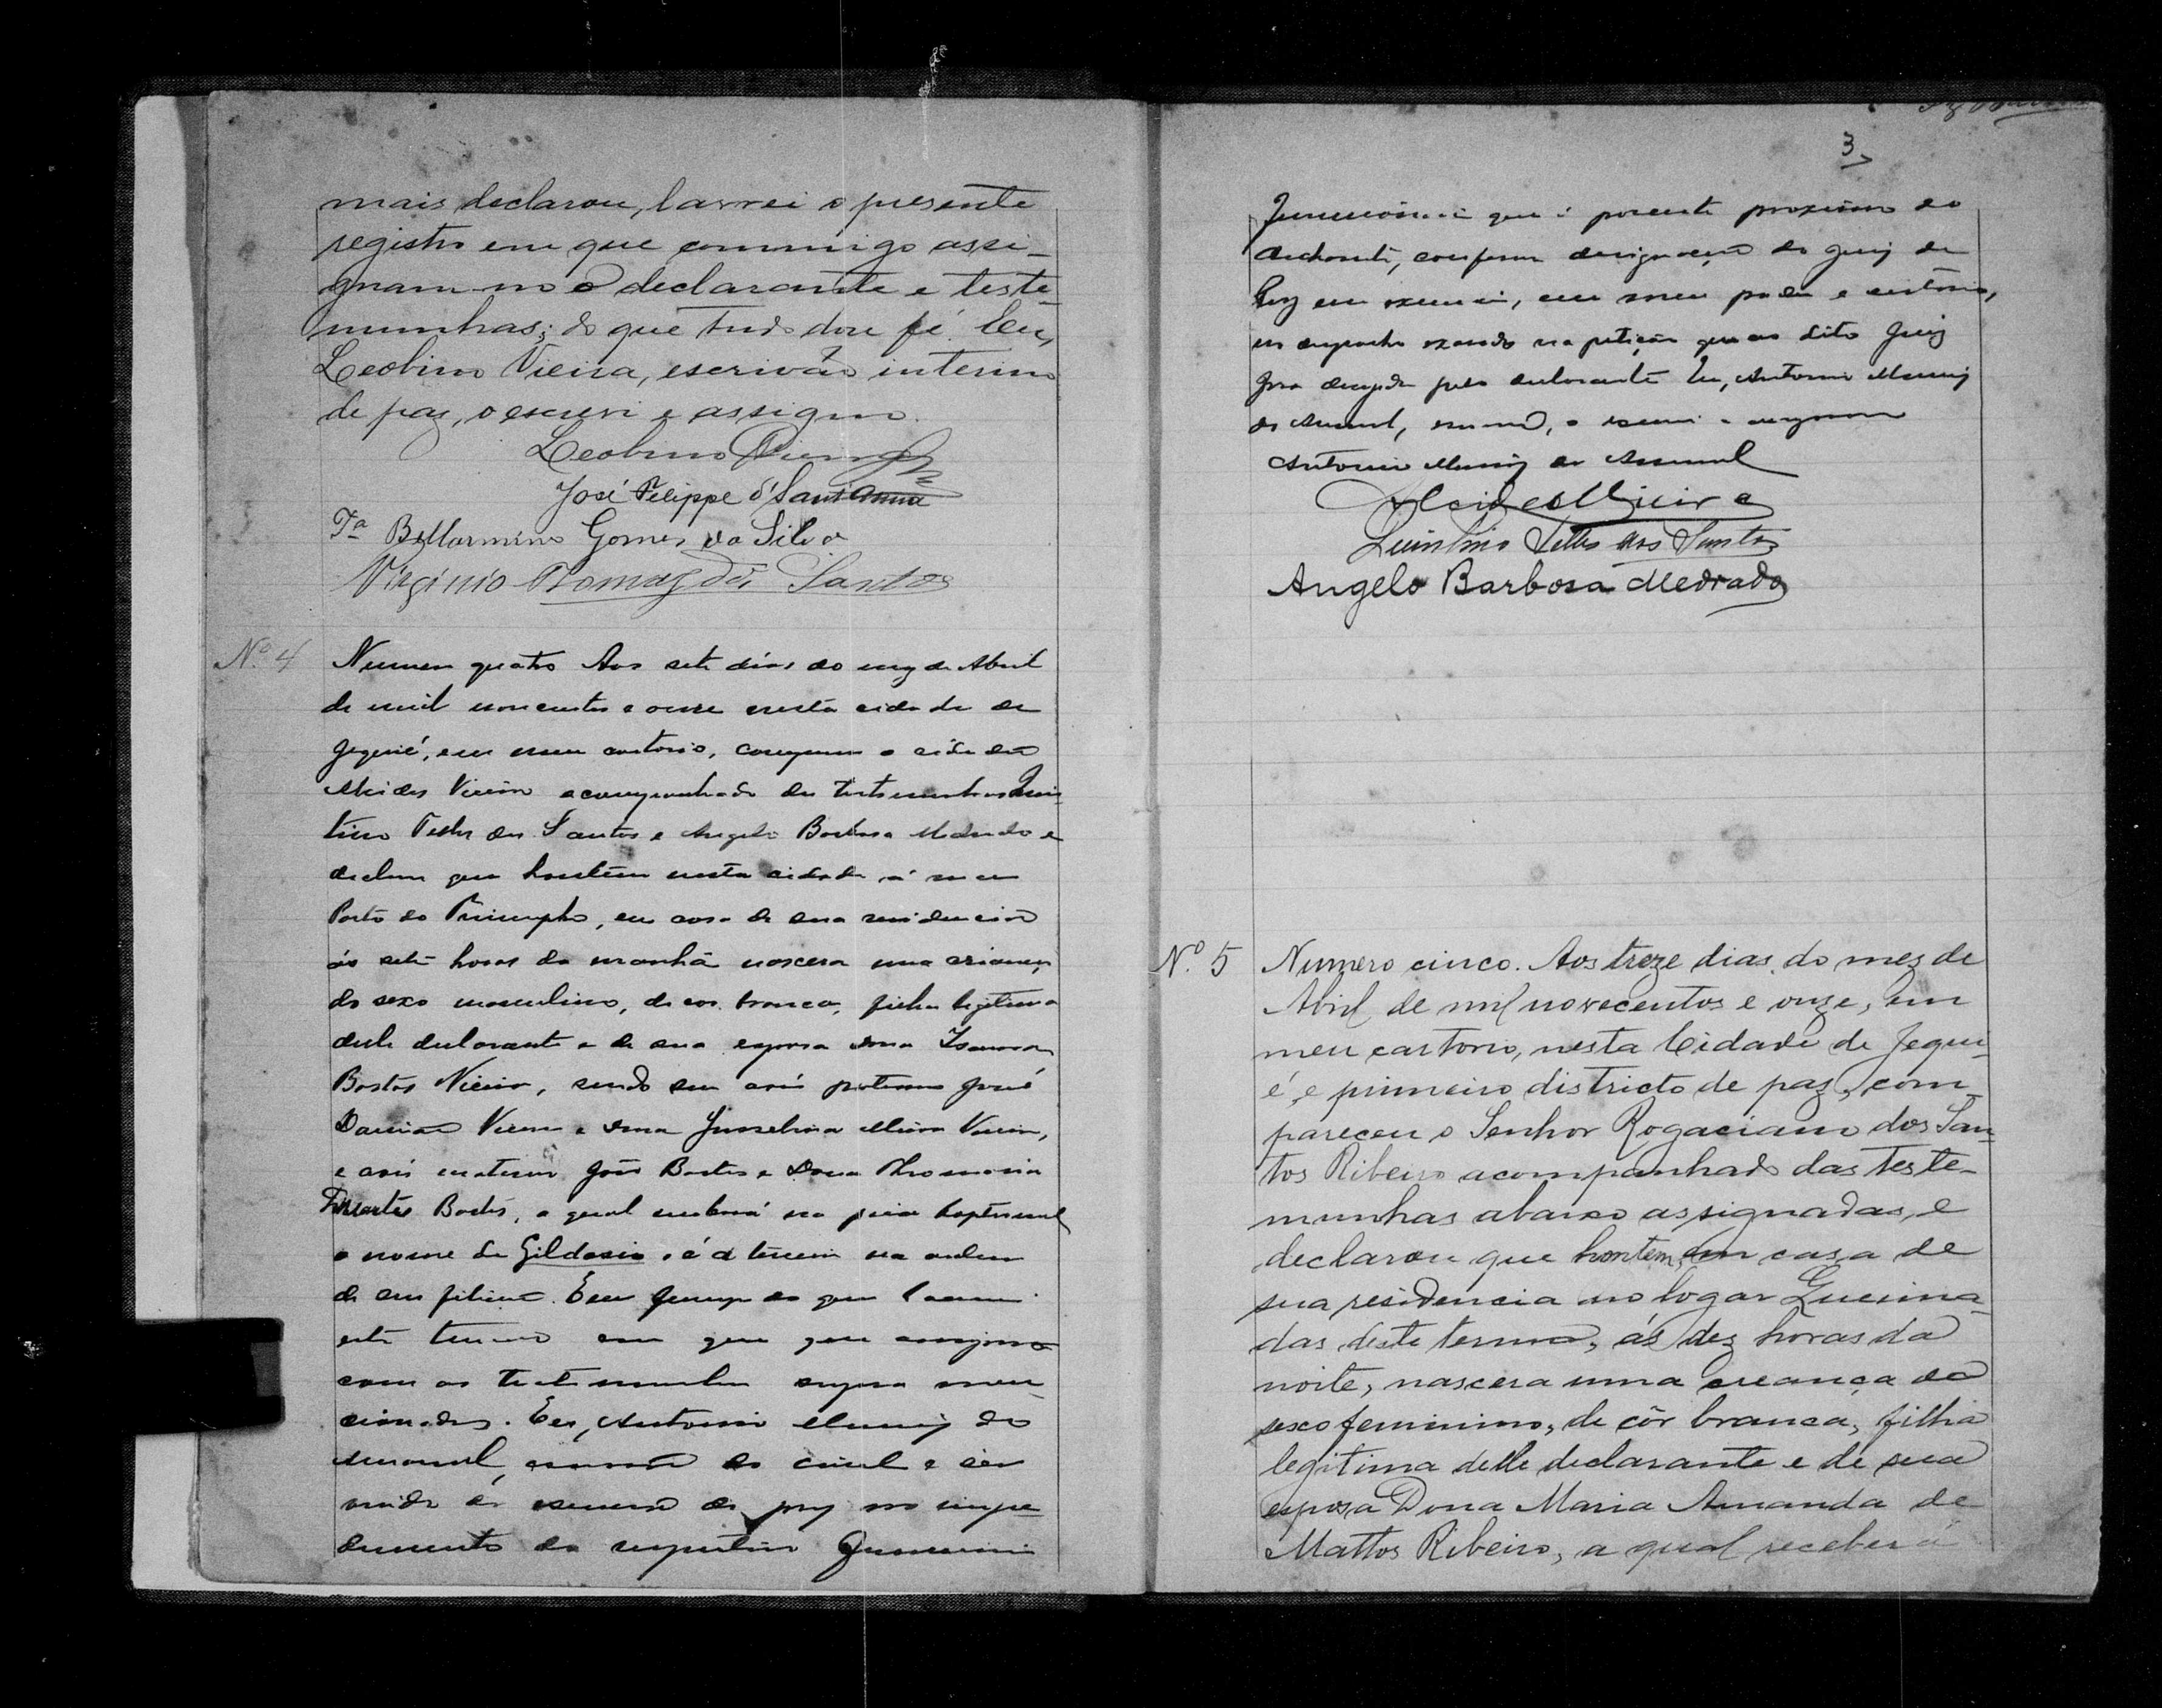 mais declarou, lavrei o presente
registro em que commigo assi-
gnam-no o declarante e teste-
munhas; do que tudo dou fé. Eu,
Leobino Vieira, escrivão interino
de paz, o escrevi e assigno.
Leobino Vieira
José Felippe d'Sant'Anna
Tª Bellarmino Gomes da Silva
Virginio Thomaz dos Santos
Nº 4
Numero quatro Aos sete dias do mez de Abril
de mil novecentos e onze nesta cidade de
Jequié, em meu cartorio, compareceu o cidadão
Alcides Vieira acompanhado das testemunhas Quin
tino Telles dos Santos e Angelo Barbosa Medrado e
declarou que hontem nesta cidade á rua
Porto do Triumpho, em casa de sua residencia
ás sete horas da manhã nascera uma criança
do sexo masculino, de cor branca, filha legitima
delle declarante e de sua esposa Dona Isaura
Bastos Vieira, sendo seus avós paternos José
Damião Vieira e Dona Vieira,
e avós maternos João Bastos e Dona Thomasia
Bastos, a qual receberá na pia baptismal
o nome de Gildasio, e é a terceira na ordem
de sua filiação. E eu do que lavrei
este termo em que que assigna
com as testemunhas supra men-
cionadas. Eu, Antonio Muniz do
Amaral, escrivão do civel e ser
vindo de escrivão de paz no impe-
dimento do
3
que é parente proximo do
declarante, conforme designação do Juiz de
Paz em exercicio, em meu poder e cartorio,
em despacho exarado na petição que ao dito Juiz
fora pelo declarante Eu, Antonio Muniz
do Amaral, escrivão, o escrevi e assigno
Antonio Muniz do Amaral
Alcides Vieira
Quintino Telles dos Santos
Angelo Barbosa Medrado
Nº 5
Numero cinco. Aos treze dias do mez de
Abril de mil novecentos e onze, em
meu cartorio, nesta Cidade de Jequi-
é, e primeiro districto de paz, com-
pareceu o Senhor Rogaciano dos San-
tos Ribeiro acompanhado das teste-
munhas abaixo assignadas, e
declarou que hontem, em casa de
sua residencia no logar Queima-
das deste termo, ás dez horas da
noite, nascera uma creança do
sexo feminino, de côr branca, filha
legitima delle declarante e de sua
esposa Dona Maria Amanda de
Mattos Ribeiro, a qual receberá